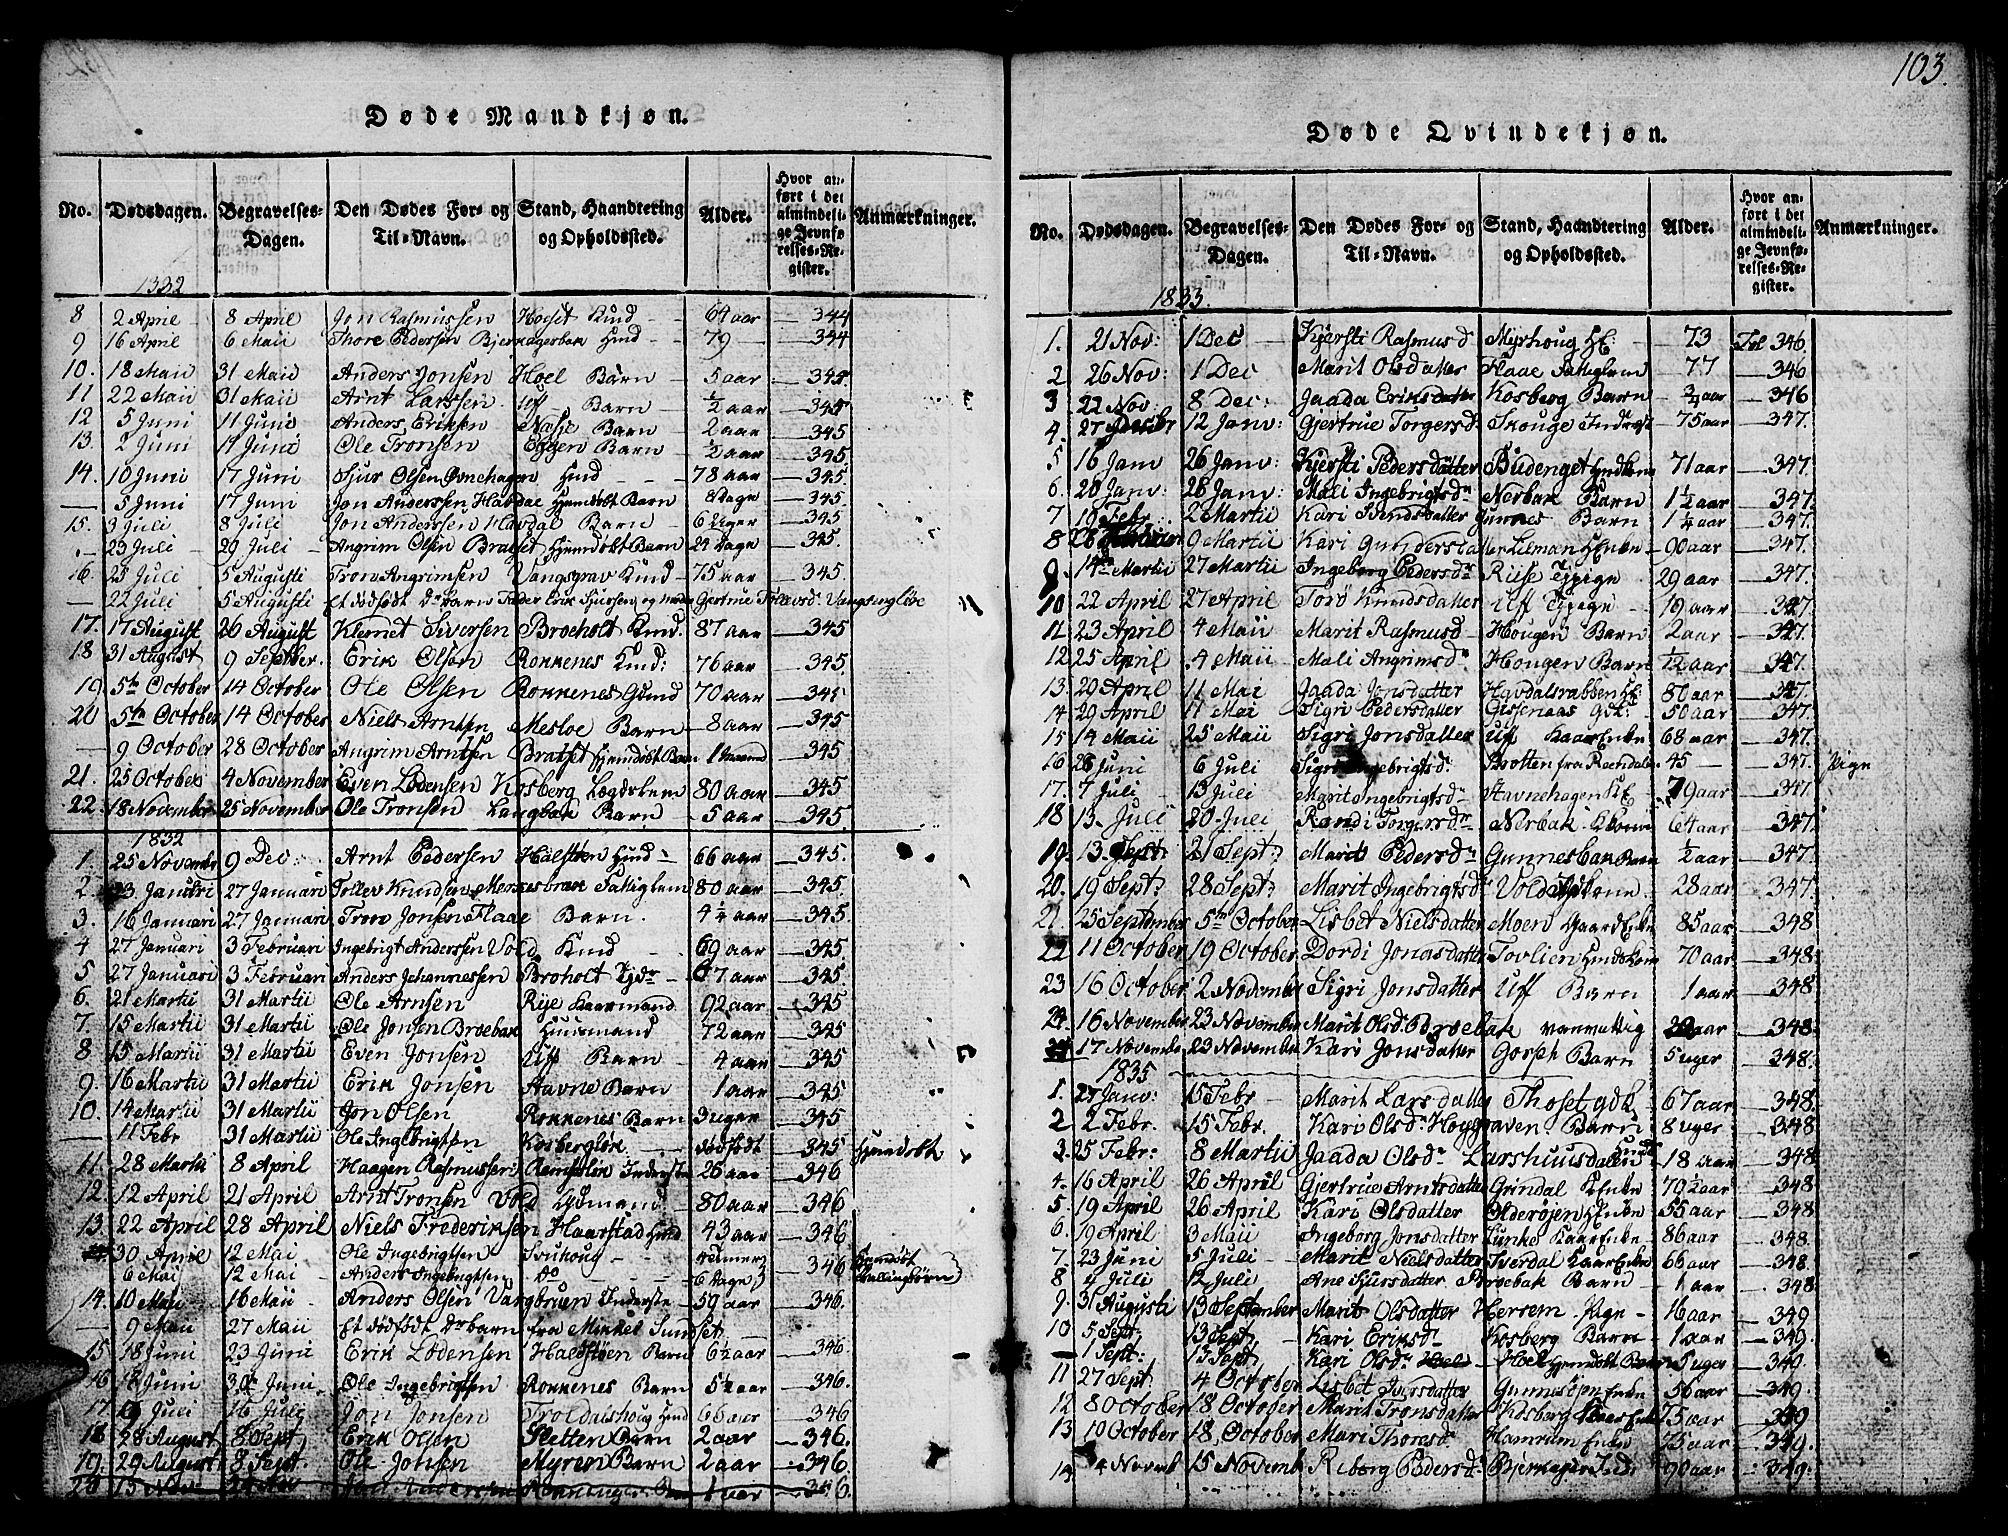 103.
Døde Mandkjøn.
No. Dødsdagen. Begravelses-Dagen. Den Dødes For- og Til-Navn. Stand, Haandtering og Opholdssted. Alder. Hvor anført i det almindelige Jevnførelses-Register. Anmærkninger.
1832
8 2 April 8 April Jon Rasmussen Hoeset Hund 64 aar 344
9 16 April 6 Maii Thore Pedersen Bjerkagerbak Hmd 79 344
10. 18 Maii 31 Maii Anders Jonsen Hoel Barn 5 aar 345
11 22 Maii 31 Maii Arnt Larssen Uff Barn ½ aar 345
12 5 Juni 11 Juni Anders Eriksen Næse Barn 2 aar 345
13. 2 Juni 17 Juni Ole Tronsen Eggen Barn ½ aar 345
14. 10 Juni 17 Juni Sjur Olsen Ovnehagen Hmd 78 aar 345
5 Juni 17 Juni Jon Anderssen Havdal Hjemdøbt Barn 8 Dage 345.
15. 3 Juli 8 Juli Jon Anderssen Havdal Barn 6 Uger 345
23 Juli 29 Juli Angrim Olsen Bratset Hjemdøbt Barn 24 Dage 345.
16. 23 Juli 5 Augusti Tron Angrimsen Vangsgrav 75 aar 345.
22 Juli 5 Augusti Et dødfødt Barn Fader Erik Sjursen og Moder Gjertrue
17. 17 August 26 August Klemet Siversen Broeholt 87 aar 345
18 31 August 9 Septber. Erik Olsen Rokkenes 76 aar 345.
19 5te October 14 October Ole Olsen Rokkenes 70 aar 345
20 5te October 14 October Niels Arntsen Mesloe Barn 8 aar 345
9 October 28 October Angrim Arntsen Bratset Hjemdøbt Barn 1 Maaned 345
21. 25 October 4 November Even Lodensen Kosberg 80 aar 345
22. 18 November 25 November Ole Tronsen Langbak Barn 5 aar 345
1832
1. 25 November 9 Dec: Arnt Pedersen Halsteen 66 aar 345.
2 23 Januari 27 Januari Tollev Knudsen 80 aar 345
3. 16 Januari 27 Januari Tron Jonsen Flaae Barn. 4¼ aar 345.
4 27 Januari 3 Februari Ingebrigt Anderssen Vold 69 aar 345.
5 27 Januari 3 Februari Anders Johannessen Broholt 67 aar 345.
6. 21 Martii 31 Martii Ole Arnsen Rise Kaarmand 92 aar 345
7. 15 Martii 31 Martii Ole Jonsen Broebak Huusmand 72 aar 345
8 15 Martii 31 Martii Even Jonsen Uff Barn 4 aar 345
9. 16 Martii 31 Martii Erik Jonsen Stavne Barn 1 aar 345
10. 14 Martii 31 Martii Jon Olsen Rokkenes Barn 3 uger 345
11 Febr 31 Martii Ole Ingebrigtsen Kosbergløk dødfødt 345 Hjemdøbt
11. 28 Martii 8 April Haagen Rasmussen Inderste 26 aar 346
12. 12 April 21 April Arnt Tronsen Vold 80 aar 346
13. 22 April 28 April Niels Frederiksen Haarstad 43 aar 346
30 April 12 Mai Ole Ingebrigtsen
6 Mai 12 Mai Anders Ingebrigtsen do 6 Dage 346
14. 10 Maii 16 Maii Anders Olsen Inderste 59 aar 346.
9 Maii 27 Maii Et dødfødt barn fra Sundset
15 18 Juni 23 Juni Erik Lodensen Haldsteen Barn 6½ aar 346
16 18 Juni 30 Juni Ole Ingebrigtsen Rokkenes Barn 5½ aar 346.
17. Juli 16 Juli Jon Jonsen Troldalshoug 66 aar 346
18 28 August 8 Sept Erik Olsen Sletten Barn 2 aar 346.
19. 29 August 8 Sept. Ole Jonsen Myren Barn 2 aar 346
20 13 Nov 24 Nov 1 aar 346.
Døde Qvindekjøn.
No. Dødsdagen. Begravelses-Dagen. Den Dødes For- og Til-Navn. Stand, Haandtering og Opholdssted. Alder. Hvor anført i det almindelige Jevnførelses-Register. Anmærkninger.
1833.
1. 21 Nov: 1 Dec Kjersti Rasmusd Myrhoug 73 Fol 346.
2 26 Nov: 1 Dec Marit Olsdatter Flaae 77 346
3 22 Nov. 8 Dec: Jaada Eriksdatter Kosberg Barn ¾ aar 346
4. 27 12 Janv: Gjertrue Torgersd. Skouge 75 aar 347.
5 16 Janv 26 Janv: Kjersti Pedersdatter Budenget 71 aar 347.
6. 20 Janv: 28 Janv: Mali Ingebrigtsdr Nerbak Barn 1½ aar 347.
7 19 Febr 2 Martii Kari Svendsdatter Gunnes Barn 1¼ aar 347.
8 9 Martii Kari Gundersdatter Lilman 90 aar 347.
9. 14 Martii 27 Martii Ingeborg Pedersdr Riise 29 aar 347.
10 22 April 27 April Torø Knudsdatter Uff 19 aar 347.
11 23 April 4 Maii Marit Rasmusd Hougen Barn 2 aar 347.
12 25 April 4 Maii Mali Angrimsdr Hougen Barn ½ aar 347.
13. 29 April 11 Mai Jaada Jonsdatter Havdalsrabben 80 aar 347.
14 29 April 11 Mai Sigri Pedersdatter Gissenaas 50 aar 347.
15 14 Maii 25 Maii Sigri Jonsdatter Uff KaarEnke 68 aar 347.
16 28 Juni 6 Juli Sigri Ingebrigtsd: Brotten fra Reendalen 45 347. Pige
17. 7 Juli 13 Juli Marit Ingebrigtsdr Stavnehagen 79 aar 347.
18 13. Juli 20 Juli Randi Torgersdr Nerbak 64 aar 347.
19. 13. Sept: 21 Sept: Marit Pedersdr Gunnesbak Barn ½ aar 347.
20. 19 Sept: 28 Sept: Marit Ingebrigtsdr Vold 28 aar 347.
21. 25 September 5te October Lisbet Nielsdatter Moen 85 aar 348
22 11 October 19 October Dordi Jonasdatter Tovlien 70 aar 348.
23 16 October 2 November Sigri Jonsdatter Uff Barn 1 aar 348
24. 16 November 23 November Marit Olsd: Broebak vanvittig aar 348.
17 November 23 November Kari Jonsdatter Gorset Barn 5 uger 348.
1835
1. 27 Janv: 15 Febr Marit Larsdatter Thoset 67 aar 348.
2 2 Febr. 15 Febr. Kari Olsdr Barn 8 uger 348
3. 25 Febr: 8 Martii Jaada Olsdr Larshuusdalen 18 aar 348.
4. 16 April 26 April Gjertrue Arntsdatter Grindal 70½ aar 348.
5 19 April 26 April Kari Olsdatter Olderøien 55 aar 348
6. 19 April 3 Maii Ingeborg Jonsdatter KaarEnke 86 aar 348
7 23 Juni 5 Juli Marit Nielsdatter Tverdal KaarEnke 66 aar 348.
8 4 Juli 12 Juli Ane Sjursdatter Broebak Barn 1 aar 348
9. 31 Augusti 13 September Marit Olsdatter Herrem Pige 16 aar 349
10 5 Sept: 13 Sept Kari Eriksd: Kosberg Barn 1 aar 349.
1 Sept: 13 Sept Kari Olsdr Hoel Hjemdøbt Barn 5 uger 349.
11 27 Sept 4 October Lisbet Iversdatter Gunnesøien Enke 56 aar 349.
12 8 October 18 October Marit Tronsdatter Kosberg 75 aar 349
13 10 October 18 October Mari Thoresd: Hamrum Enke 75 aar 349.
14 4 Novemb 15 Novemb Reborg Pedersd: Bjerkager 90 aar 349.